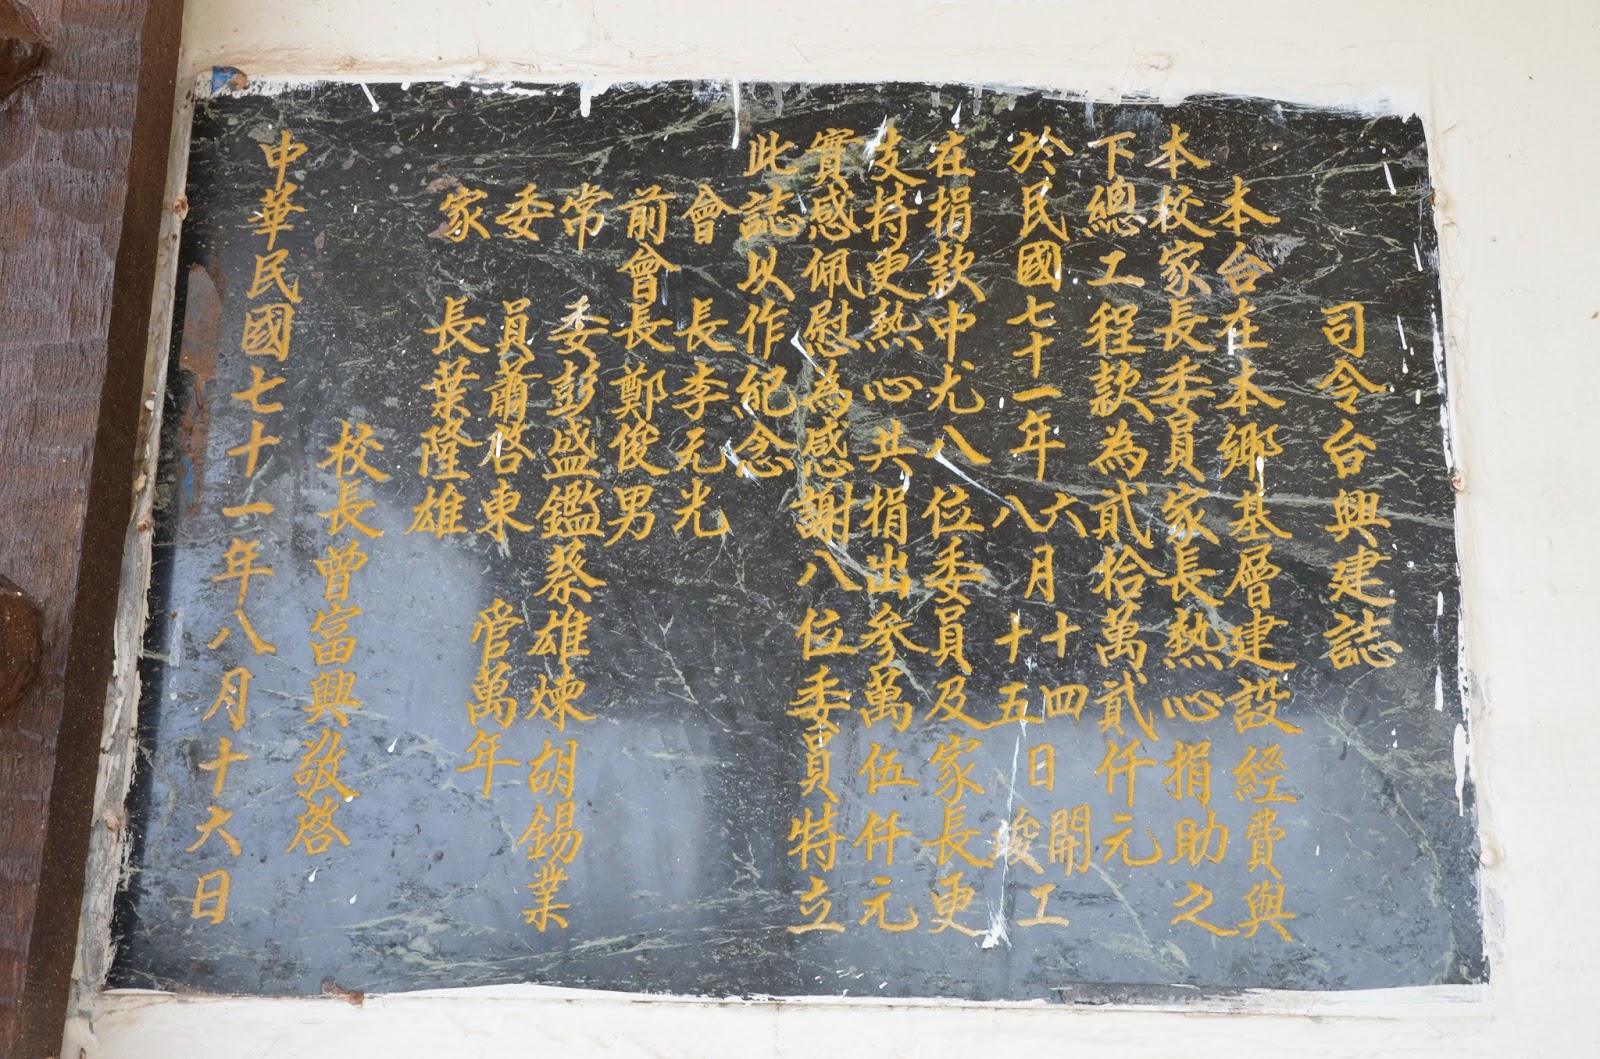 司令台興建誌
本台在本鄉基層建設經費與
本校家長委員家長熱心捐助之
下總工程款為貳拾萬貳仟元
於民國七十一年六八月十十四五日開竣工
在捐款中尤八位委員及家長更
支持更熱心共捐出參萬伍仟元
實感佩慰為感謝八位委員特立
此誌以作紀念
會長李元光
前會長鄭俊男
常委彭盛鑑蔡雄煉胡錫業
委員蕭啓東管萬年
家長葉隆雄
校長曾富興敬啓
中華民國七十一年八月十六日